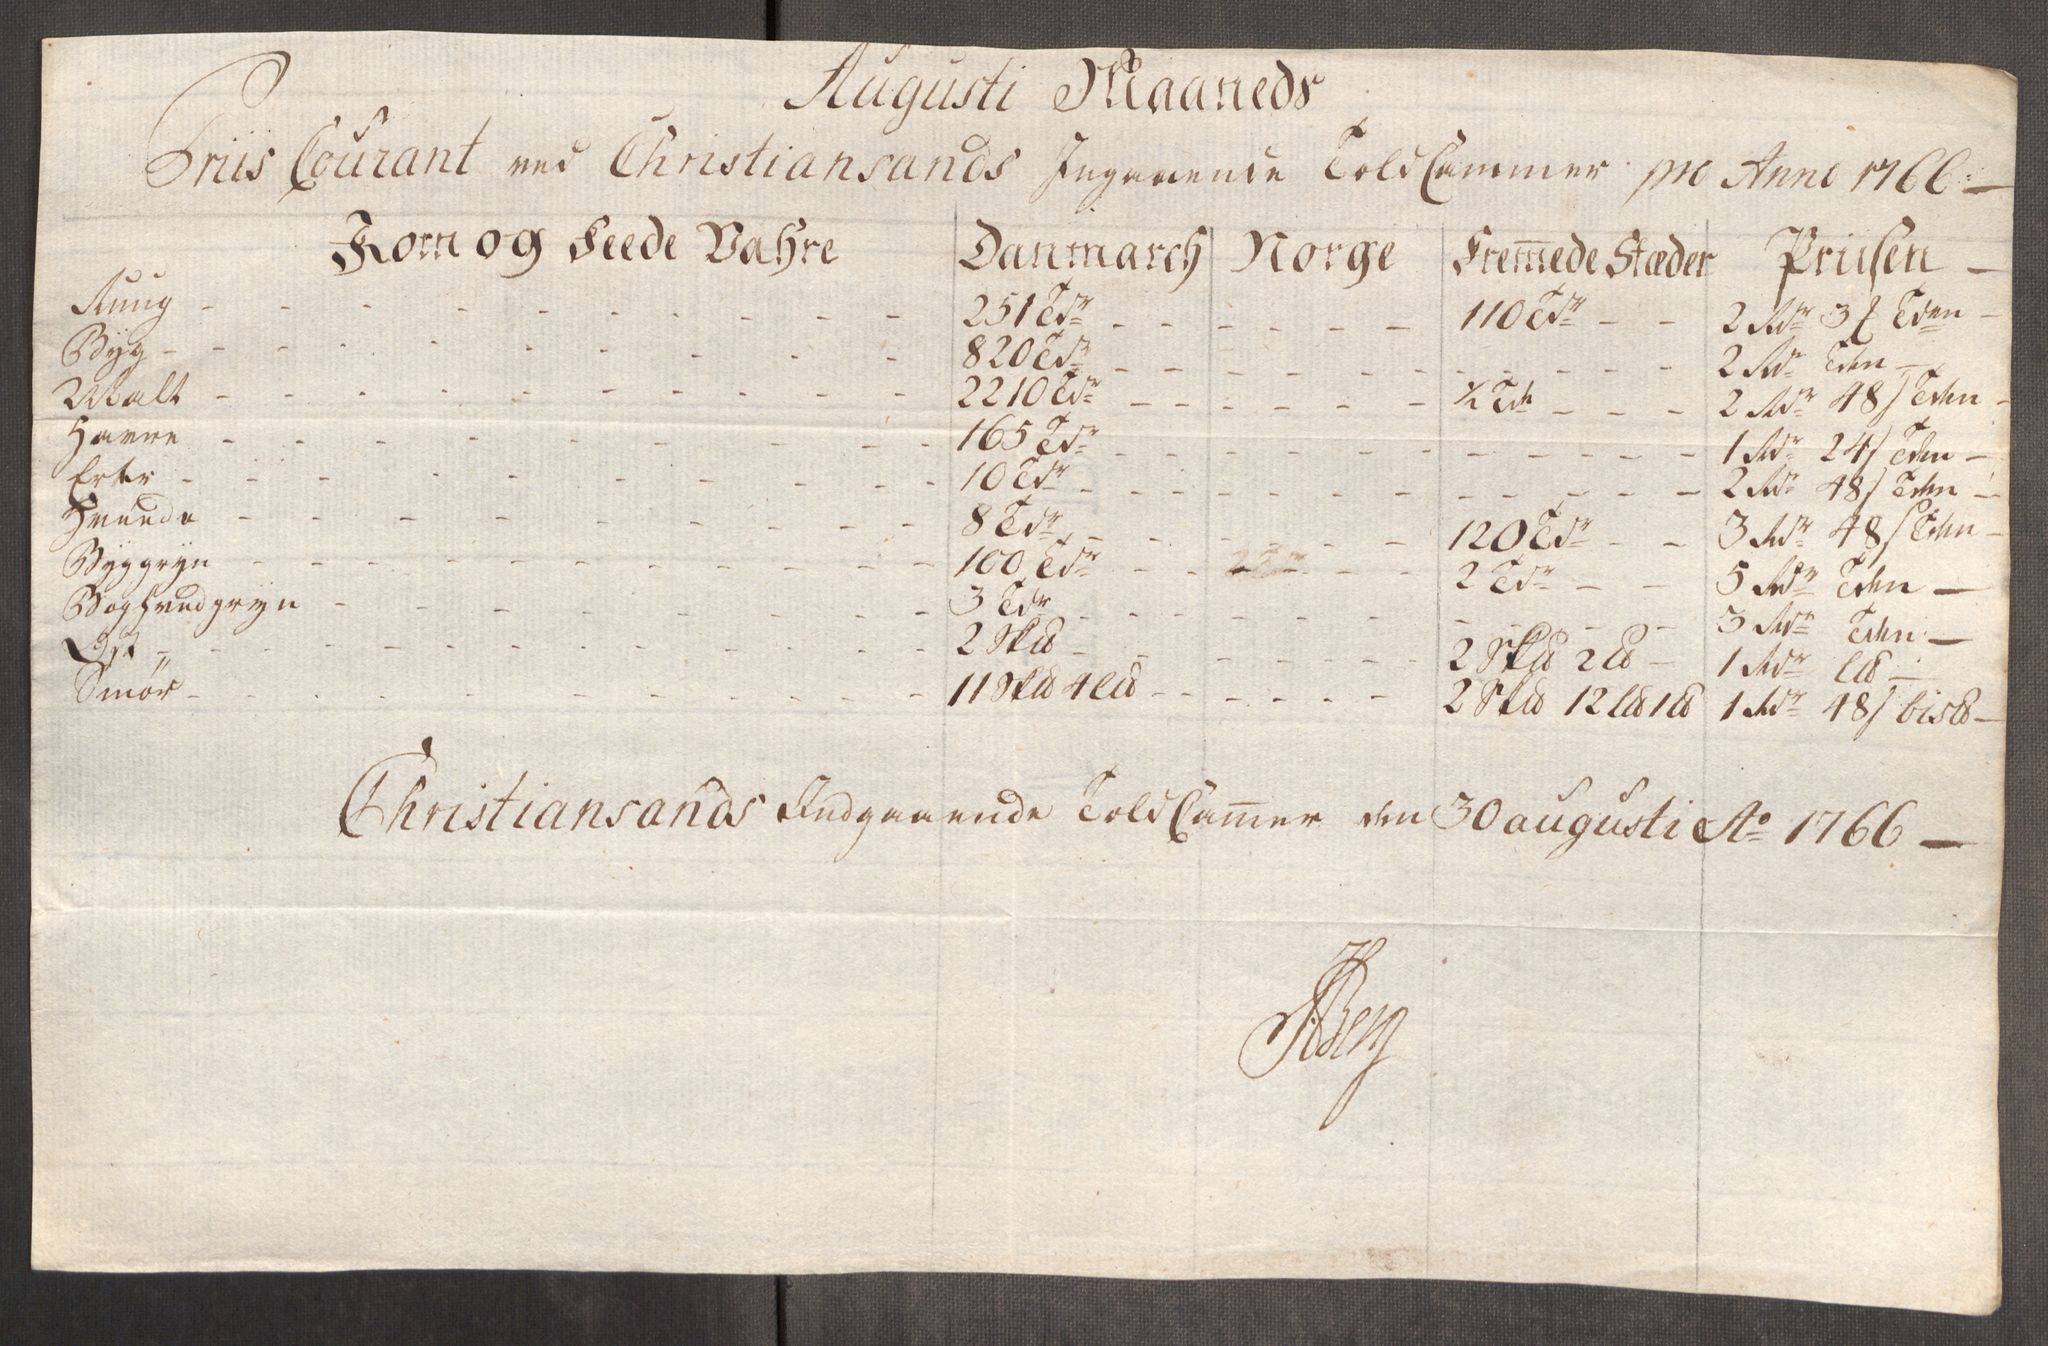 Augusti Maaneds
Priis Courant ved Christiansands Ingaaende Told Cammer pro Anno 1766
Korn og Feede Vahre Danmarch Norge Fremede Stæder Priisen
Ruug 251 Tdr 110 Tdr 2 Rdr 3 Tden
Byg 820 Tdr 2 Rdr Tden
Malt 2210 Tdr ½ Tde 2 Rdr 48 s Tden
Havre 165 Tdr 1 Rdr 24 s Tden
Erter 10 Tdr 2 Rdr 48 s Tden
Hvuede 8 Tdr 120 Tdr 3 Rdr 48 s Tden
Byggryn 100 Tdr 2 Tdr 5 Rdr Tden
Boghvedgryn 3 Tdr 3 Rdr Tden
Ost 2 Sk℔ 2 Sk℔ 2 l℔ 1 Rdr l℔
Smör 11 Sk℔ 4 l℔ 2 Sk℔ 12 l℔ 1 ℔ 1 Rdr 48 s bis℔
Christiansands Indgaaende Told Camer den 30 augusti Ao 1766
Berg